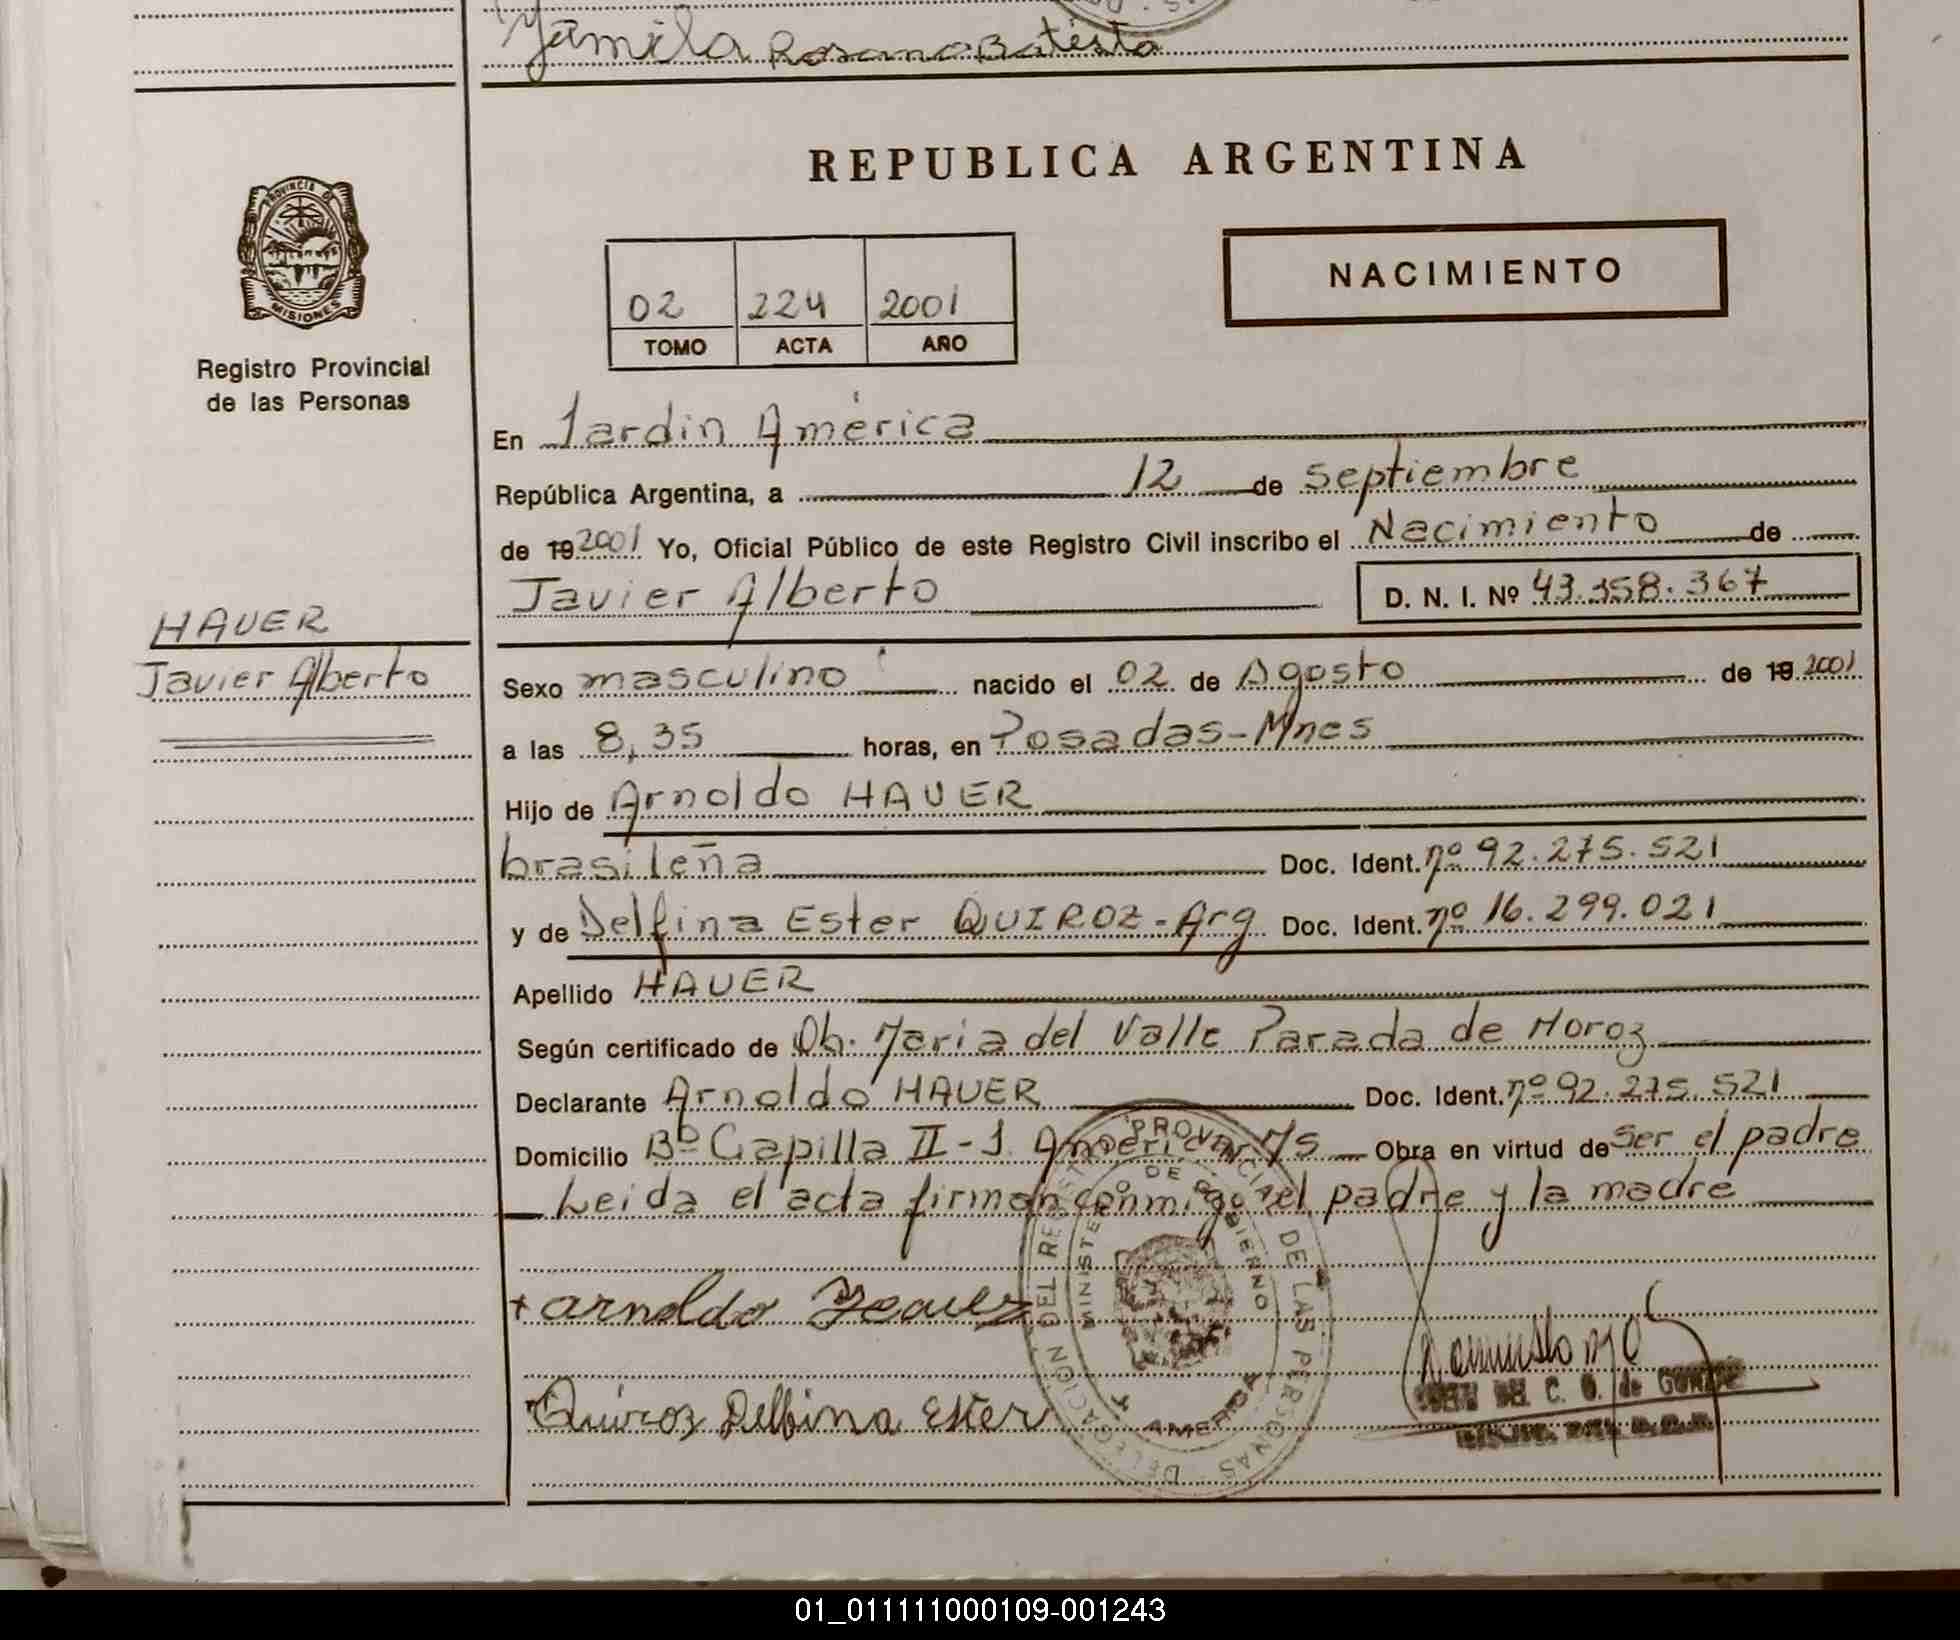 Yamila Rosana Batista
REPUBLICA ARGENTINA
PROVINCIA DE
MISIONES
Registro Provincial
de las Personas
NACIMIENTO
02 224 2001
TOMO ACTA AÑO
En Jardin América
República Argentina, a 12 de septiembre
de 19 2001 Yo, Oficial Público de este Registro Civil inscribo el Nacimiento de
Javier Alberto D. N. I. Nº 43.358.367
HAUER
Javier Alberto
Sexo masculino nacido el 02 de Agosto de 19 2001
a las 8,35 horas, en Posadas-Mnes
Hijo de Arnoldo HAUER
brasileña Doc. Ident. nº 92.275.521
y de Delfina Ester QUIROZ-Arg Doc. Ident. nº 16.299.021
Apellido HAUER
Según certificado de Ob. Maria del Valle Parada de Moroz
Declarante Arnoldo HAUER Doc. Ident. nº 92.275.521
Domicilio Bº Capilla II - J. America Ms Obra en virtud de ser el padre
Leida el acta firman conmigo el padre y la madre
DELEGACION DEL REGISTRO PROVINCIAL DE LAS PERSONAS
MINISTERIO DE GOBIERNO
AMERICA
arnoldo Hauer
Quiroz Delfina Ester
DEL C. G. de
01_011111000109-001243